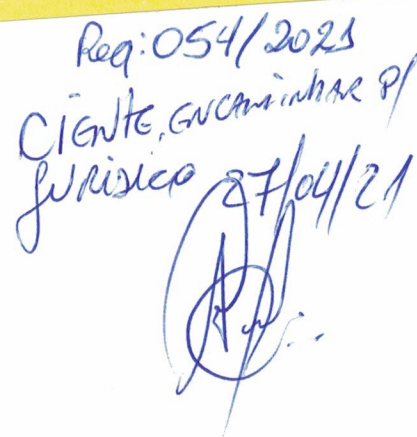 Req: 054/2021
CIENTE, ENCAMINHAR P/
JURIDICO 27/04/21